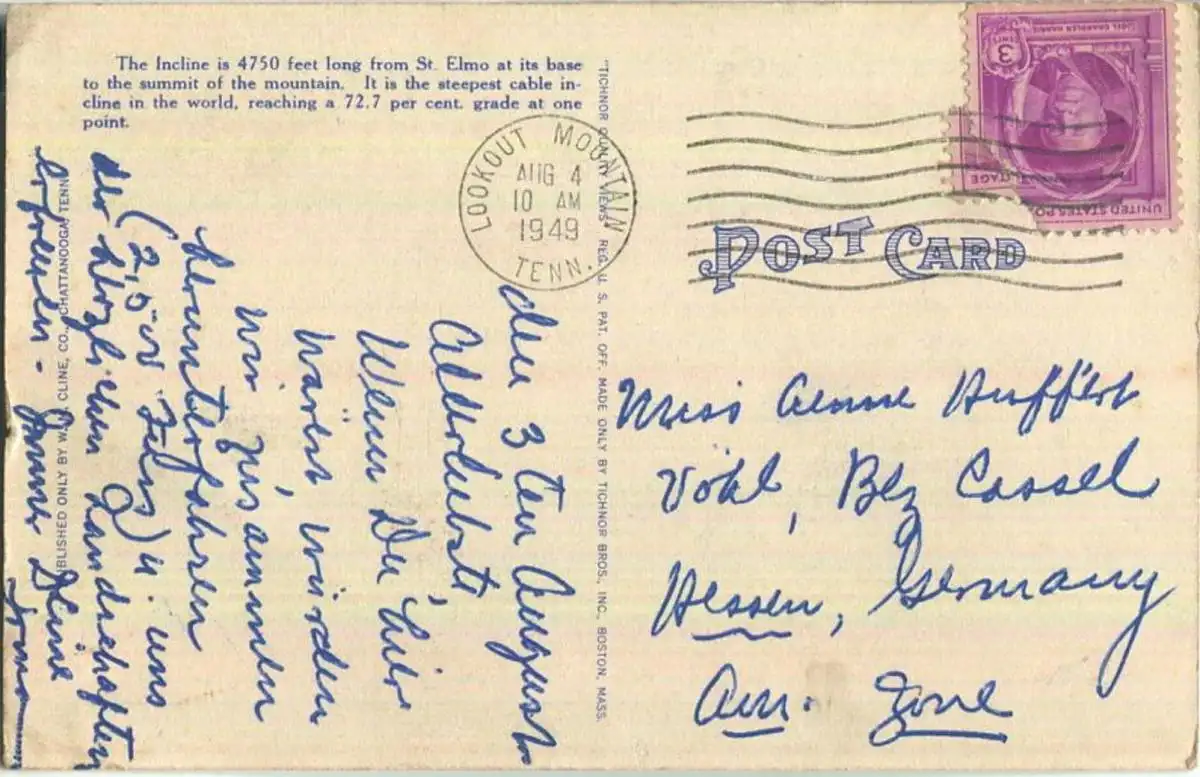 The Incline is 4750 feet long from St. Elmo at its base
to the summit of the mountain. It is the steepest cable in-
cline in the world, reaching a 72.7 per cent. grade at one
point.
LOOKOUT MOUNTAIN
AUG 4
10 AM
1949
TENN.
3
CENTS
UNITED STATES PO
POST CARD
"TICHNOR QUALITY VIEWS" REG. U. S. PAT. OFF. MADE ONLY BY TICHNOR BROS., INC., BOSTON, MASS.
BLISHED ONLY BY W. M. CLINE, CO., CHATTANOOGA, TENN.
den 3 ten August
Allerliebste,
Wenn Du hier
wärst, würden
wir zusammen
herunterfahren
(2,50 ) u. uns
der herzlichen Landschaften
erfreuen - Immer Deine
Miss Aenne Huffert
Vöhl, Bez Cassel
Hessen, Germany
Am. Zone